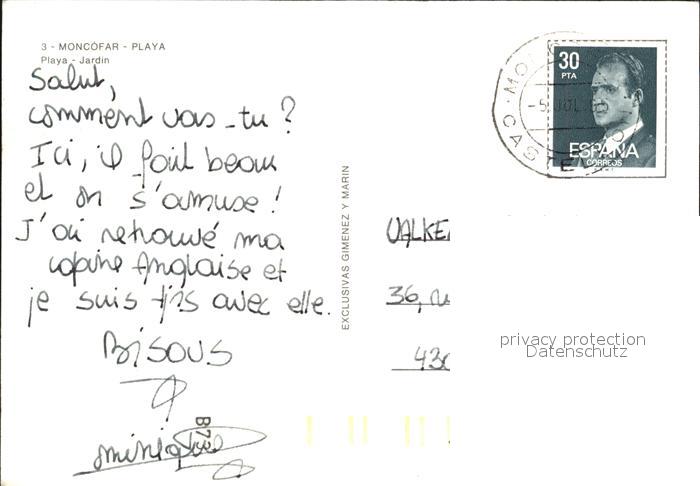 3 - MONCÓFAR - PLAYA
Playa - Jardin
Salut,
comment vas-tu ?
Ici, il fait beau
et on s'amuse !
J'ai retrouvé ma
copine Anglaise et
je suis tjrs avec elle.
BISOUS
B73
EXCLUSIVAS GIMENEZ Y MARIN
30
PTA
ESPAÑA
CORREOS
-5 JUL
CASTE
36,
43
privacy protection
Datenschutz